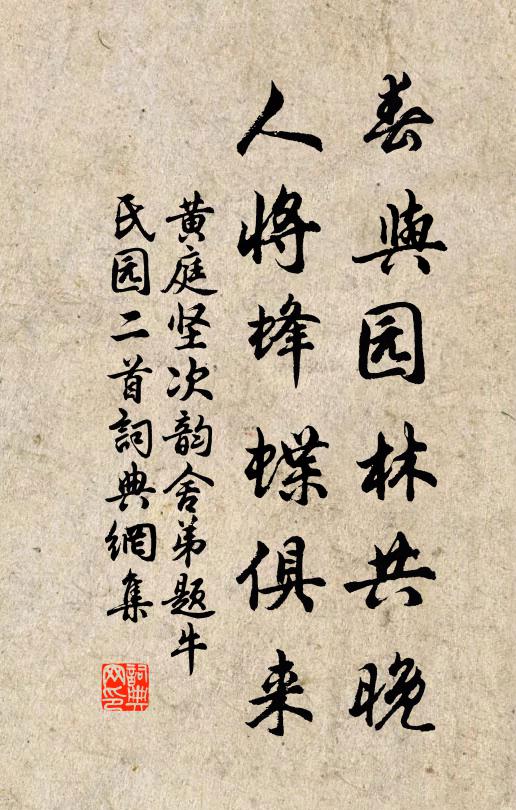 春與园林共晚
人将蜂蝶俱来
黄庭坚次韵舍弟题牛
民园二首詞典網集
詞典
网印